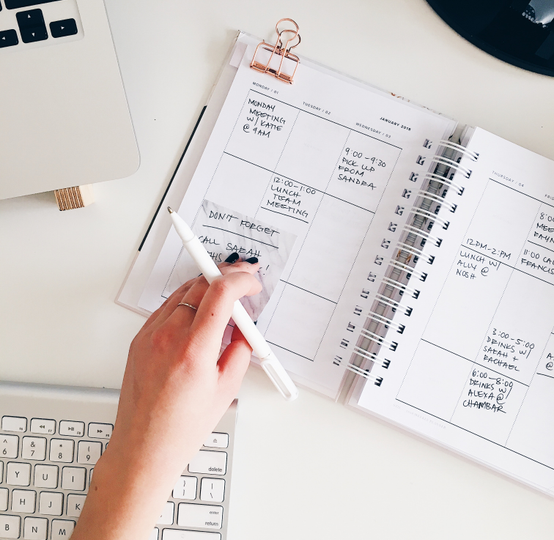 MONDAY | 01
MONDAY
MEETING
W/ KATIE
@ 9AM
TUESDAY | 02
12:00-1:00
LUNCH
TEAM
MEETING
JANUARY 2018
WEDNESDAY | 03
9:00-9:30
PICK UP
FROM
SANDRA
DON'T FORGET
CALL SARAH
THURSDAY | 04
12PM-2PM
LUNCH W/
ALLY @
NOSH
3:00-5:00
DRINKS W/
SARAH +
RACHAEL
6:00-8:00
DRINKS W/
ALEXA @
CHAMBAR
delete
return
&
7
*
8
6
9
Y
U
I
H
J
K
B
N
M